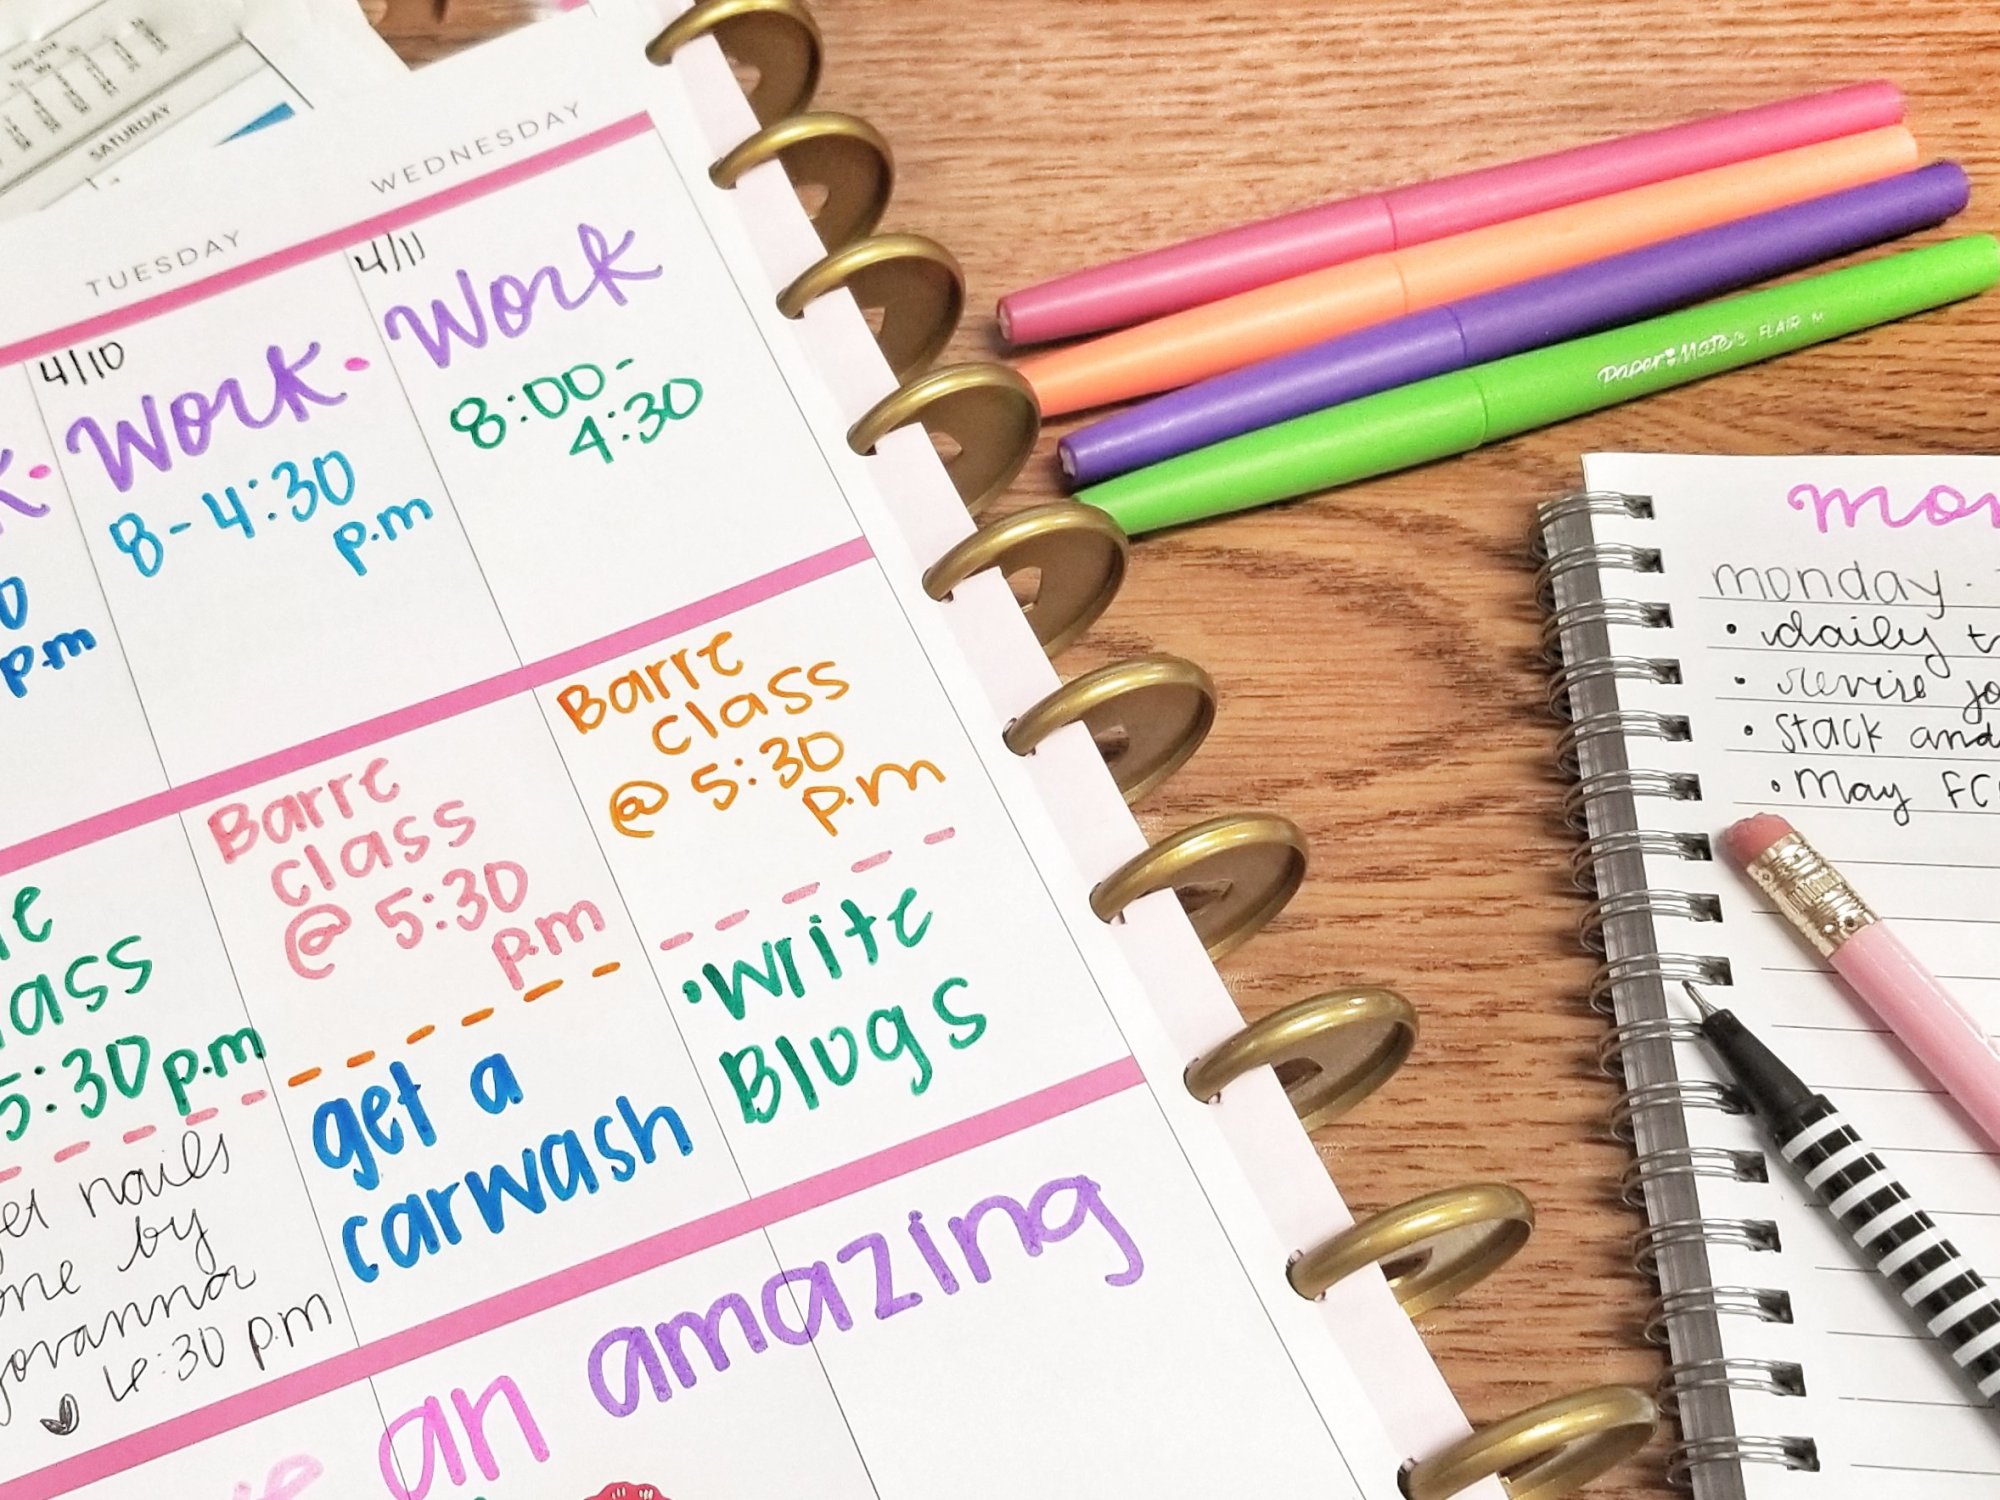 SATURDAY
TUESDAY
WEDNESDAY
4/10
Work
8-4:30
p.m
4/11
Work
8:00-
4:30
p.m
Barre
class
@ 5:30
p.m
get a
carwash
Barre
class
@ 5:30
p.m
•write
Blogs
5:30 p.m
nails
by
4:30 p.m
an amazing
Paper Mate FLAIR M
monday.
• daily
• revise
• stack and
• May